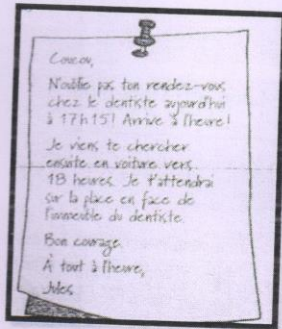 Coucou,
N'oublie pas ton rendez-vous
chez le dentiste aujourd'hui
à 17h15! Arrive à l'heure!
Je viens te chercher
ensuite en voiture vers
18 heures. Je t'attendrai
sur la place en face de
l'immeuble du dentiste.
Bon courage.
À tout à l'heure,
Jules